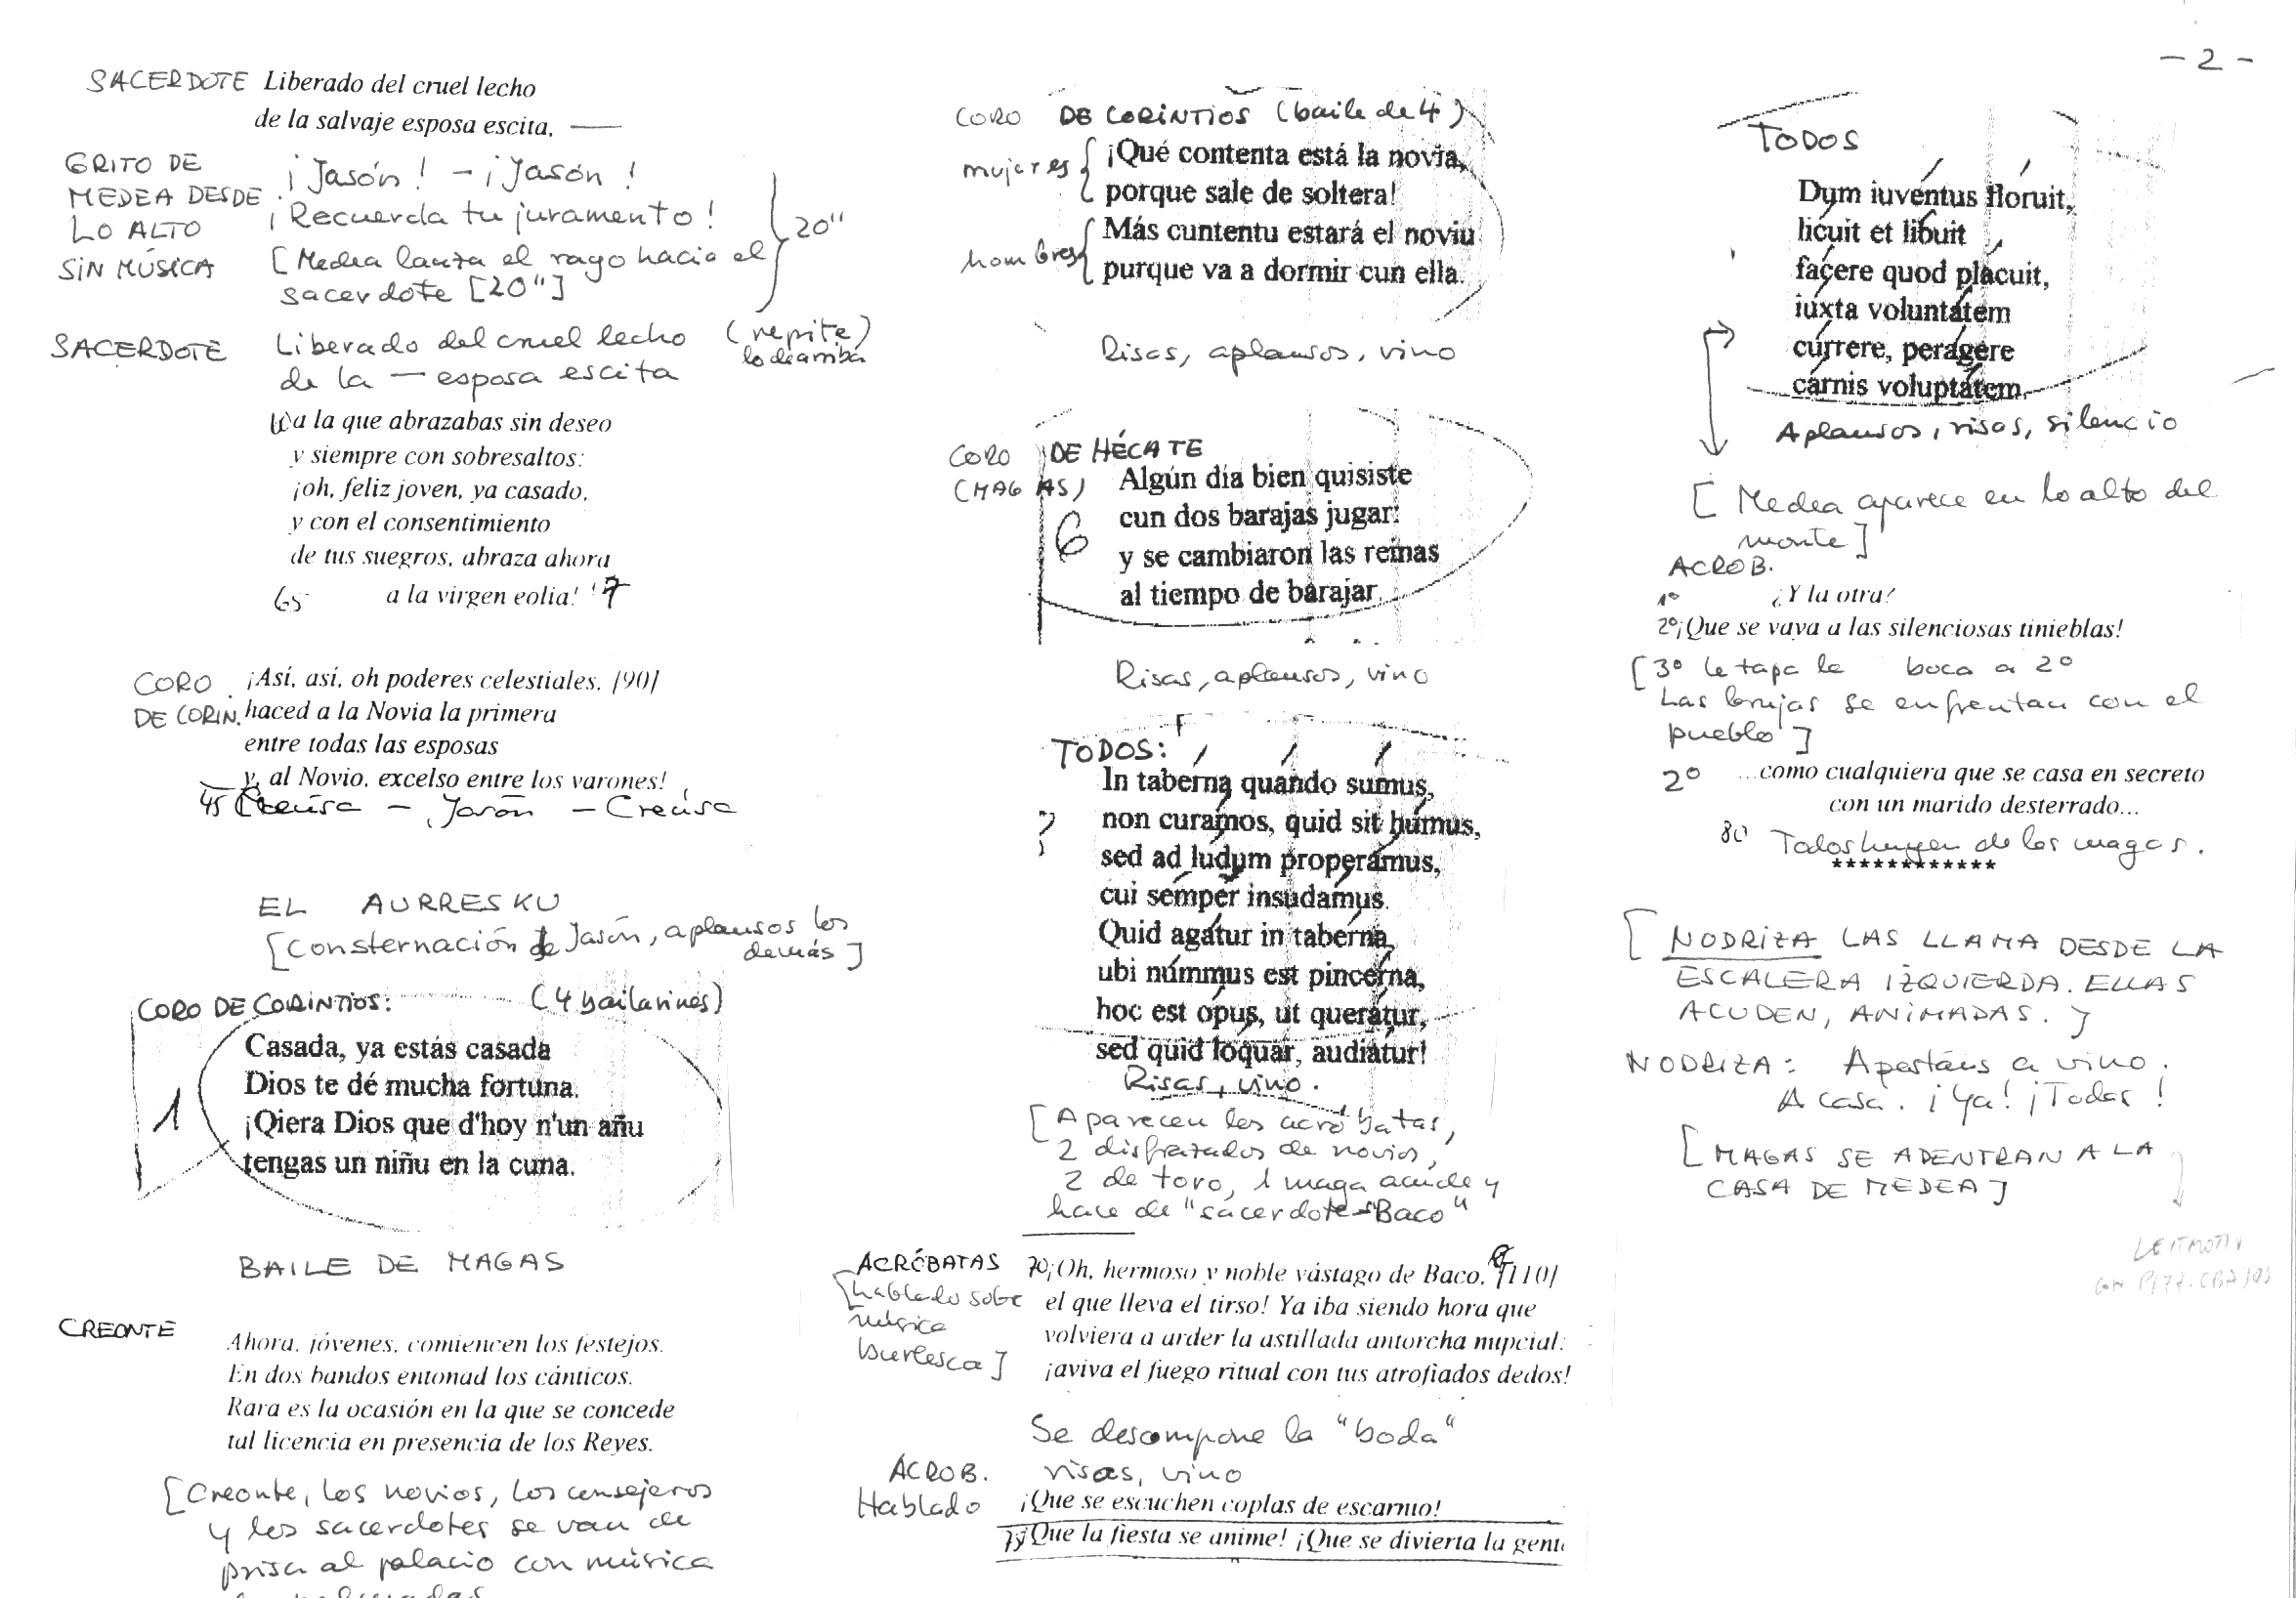 - 2 -
SACERDOTE Liberado del cruel lecho
de la salvaje esposa escita, —
GRITO DE
MEDEA DESDE
LO ALTO
SIN MÚSICA
¡Jasón! - ¡Jasón!
¡Recuerda tu juramento!
[Medea lanza el rayo hacia el
sacerdote [20"]
20"
SACERDOTE Liberado del cruel lecho (repite)
lo de arriba
de la — esposa escita
a la que abrazabas sin deseo
y siempre con sobresaltos:
¡oh, feliz joven, ya casado,
y con el consentimiento
de tus suegros, abraza ahora
65 a la virgen eolia!
CORO
DE CORIN.
¡Así, así, oh poderes celestiales, [90]
haced a la Novia la primera
entre todas las esposas
y, al Novio, excelso entre los varones!
Creúsa - Jasón - Creúsa
EL AURRESKU
[Consternación de Jasón, aplausos los
demás]
CORO DE CORINTIOS: (4 bailarines)
1
Casada, ya estás casada
Dios te dé mucha fortuna.
¡Qiera Dios que d'hoy n'un añu
tengas un niñu en la cuna.
BAILE DE MAGAS
CREONTE
Ahora, jóvenes, comiencen los festejos.
En dos bandos entonad los cánticos.
Rara es la ocasión en la que se concede
tal licencia en presencia de los Reyes.
[Creonte, los novios, los consejeros
y los sacerdotes se van de
prisa al palacio con música
CORO DE CORINTIOS (baile de 4)
mujeres
¡Qué contenta está la novia,
porque sale de soltera!
hombres
Más cuntentu estará el noviu
purque va a dormir cun ella.
Risas, aplausos, vino
CORO DE HÉCATE
(MAGAS)
6
Algún día bien quisiste
cun dos barajas jugar:
y se cambiaron las reinas
al tiempo de barajar.
Risas, aplausos, vino
TODOS:
In taberna quando sumus,
non curamos, quid sit húmus,
sed ad ludum properámus,
cui sémper insudámus.
Quid agátur in taberna,
ubi númmus est pincérna,
hoc est ópus, ut querátur,
sed quid lóquar, audiátur!
Risas, vino.
[Aparecen los acróbatas,
2 disfrazados de novios,
2 de toro, 1 maga acude y
hace de "sacerdote-Baco"
ACRÓBATAS
[hablado sobre
música
burlesca]
70 ¡Oh, hermoso y noble vástago de Baco, [110]
el que lleva el tirso! Ya iba siendo hora que
volviera a arder la astillada antorcha nupcial:
¡aviva el fuego ritual con tus atrofiados dedos!
Se descompone la "boda"
risas, vino
ACROB.
Hablado
¡Que se escuchen coplas de escarnio!
¡Que la fiesta se anime! ¡Que se divierta la gent
TODOS
Dum iuvéntus flóruit,
licuit et libuit
fácere quod plácuit,
iúxta voluntátem
cúrrere, perágere
cárnis voluptátem.
Aplausos, risas, silencio
[Medea aparece en lo alto del
monte]
ACROB.
1º ¿Y la otra?
2º ¡Que se vaya a las silenciosas tinieblas!
[3º le tapa la boca a 2º
Las brujas se enfrentan con el
pueblo]
2º ...como cualquiera que se casa en secreto
con un marido desterrado...
80 Todos huyen de las magas.
************
[NODRIZA LAS LLAMA DESDE LA
ESCALERA IZQUIERDA. ELLAS
ACUDEN, ANIMADAS.]
NODRIZA: Apestáis a vino.
A casa. ¡Ya! ¡Todas!
[MAGAS SE ADENTRAN A LA
CASA DE MEDEA]
LEITMOTIV